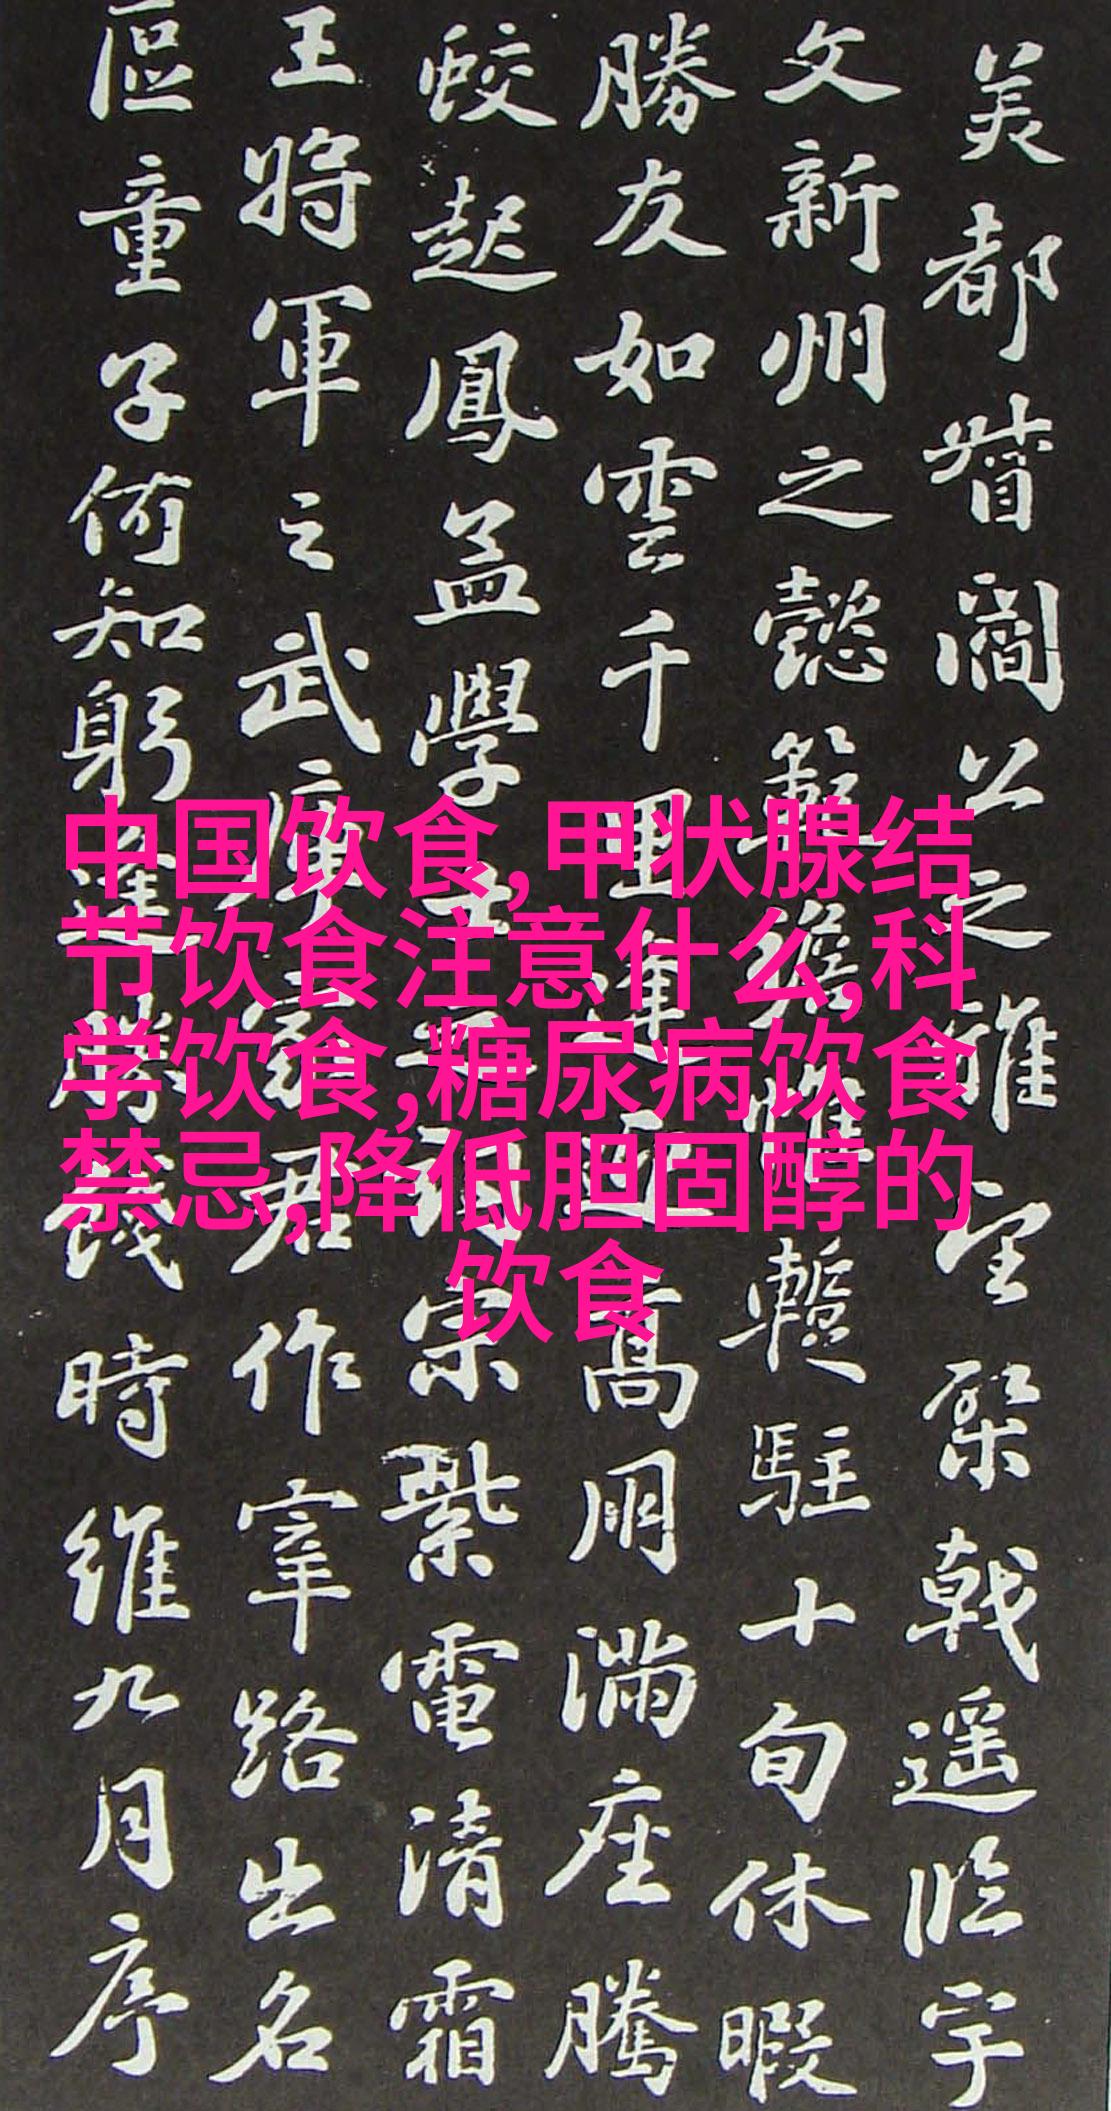 中国饮食,甲状腺结
节饮食注意什么,科
学饮食,糖尿病饮食
禁忌,降低胆固醇的
饮食
美都督閻公之雅望棨戟遥臨宇
文新州之懿範襜帷暫駐十旬休暇
勝友如雲千里逢迎高朋滿座騰
蛟起鳳孟學士之詞宗紫電清霜
王將軍之武庫家君作宰路出名
區童子何知躬逢勝餞時維九月序